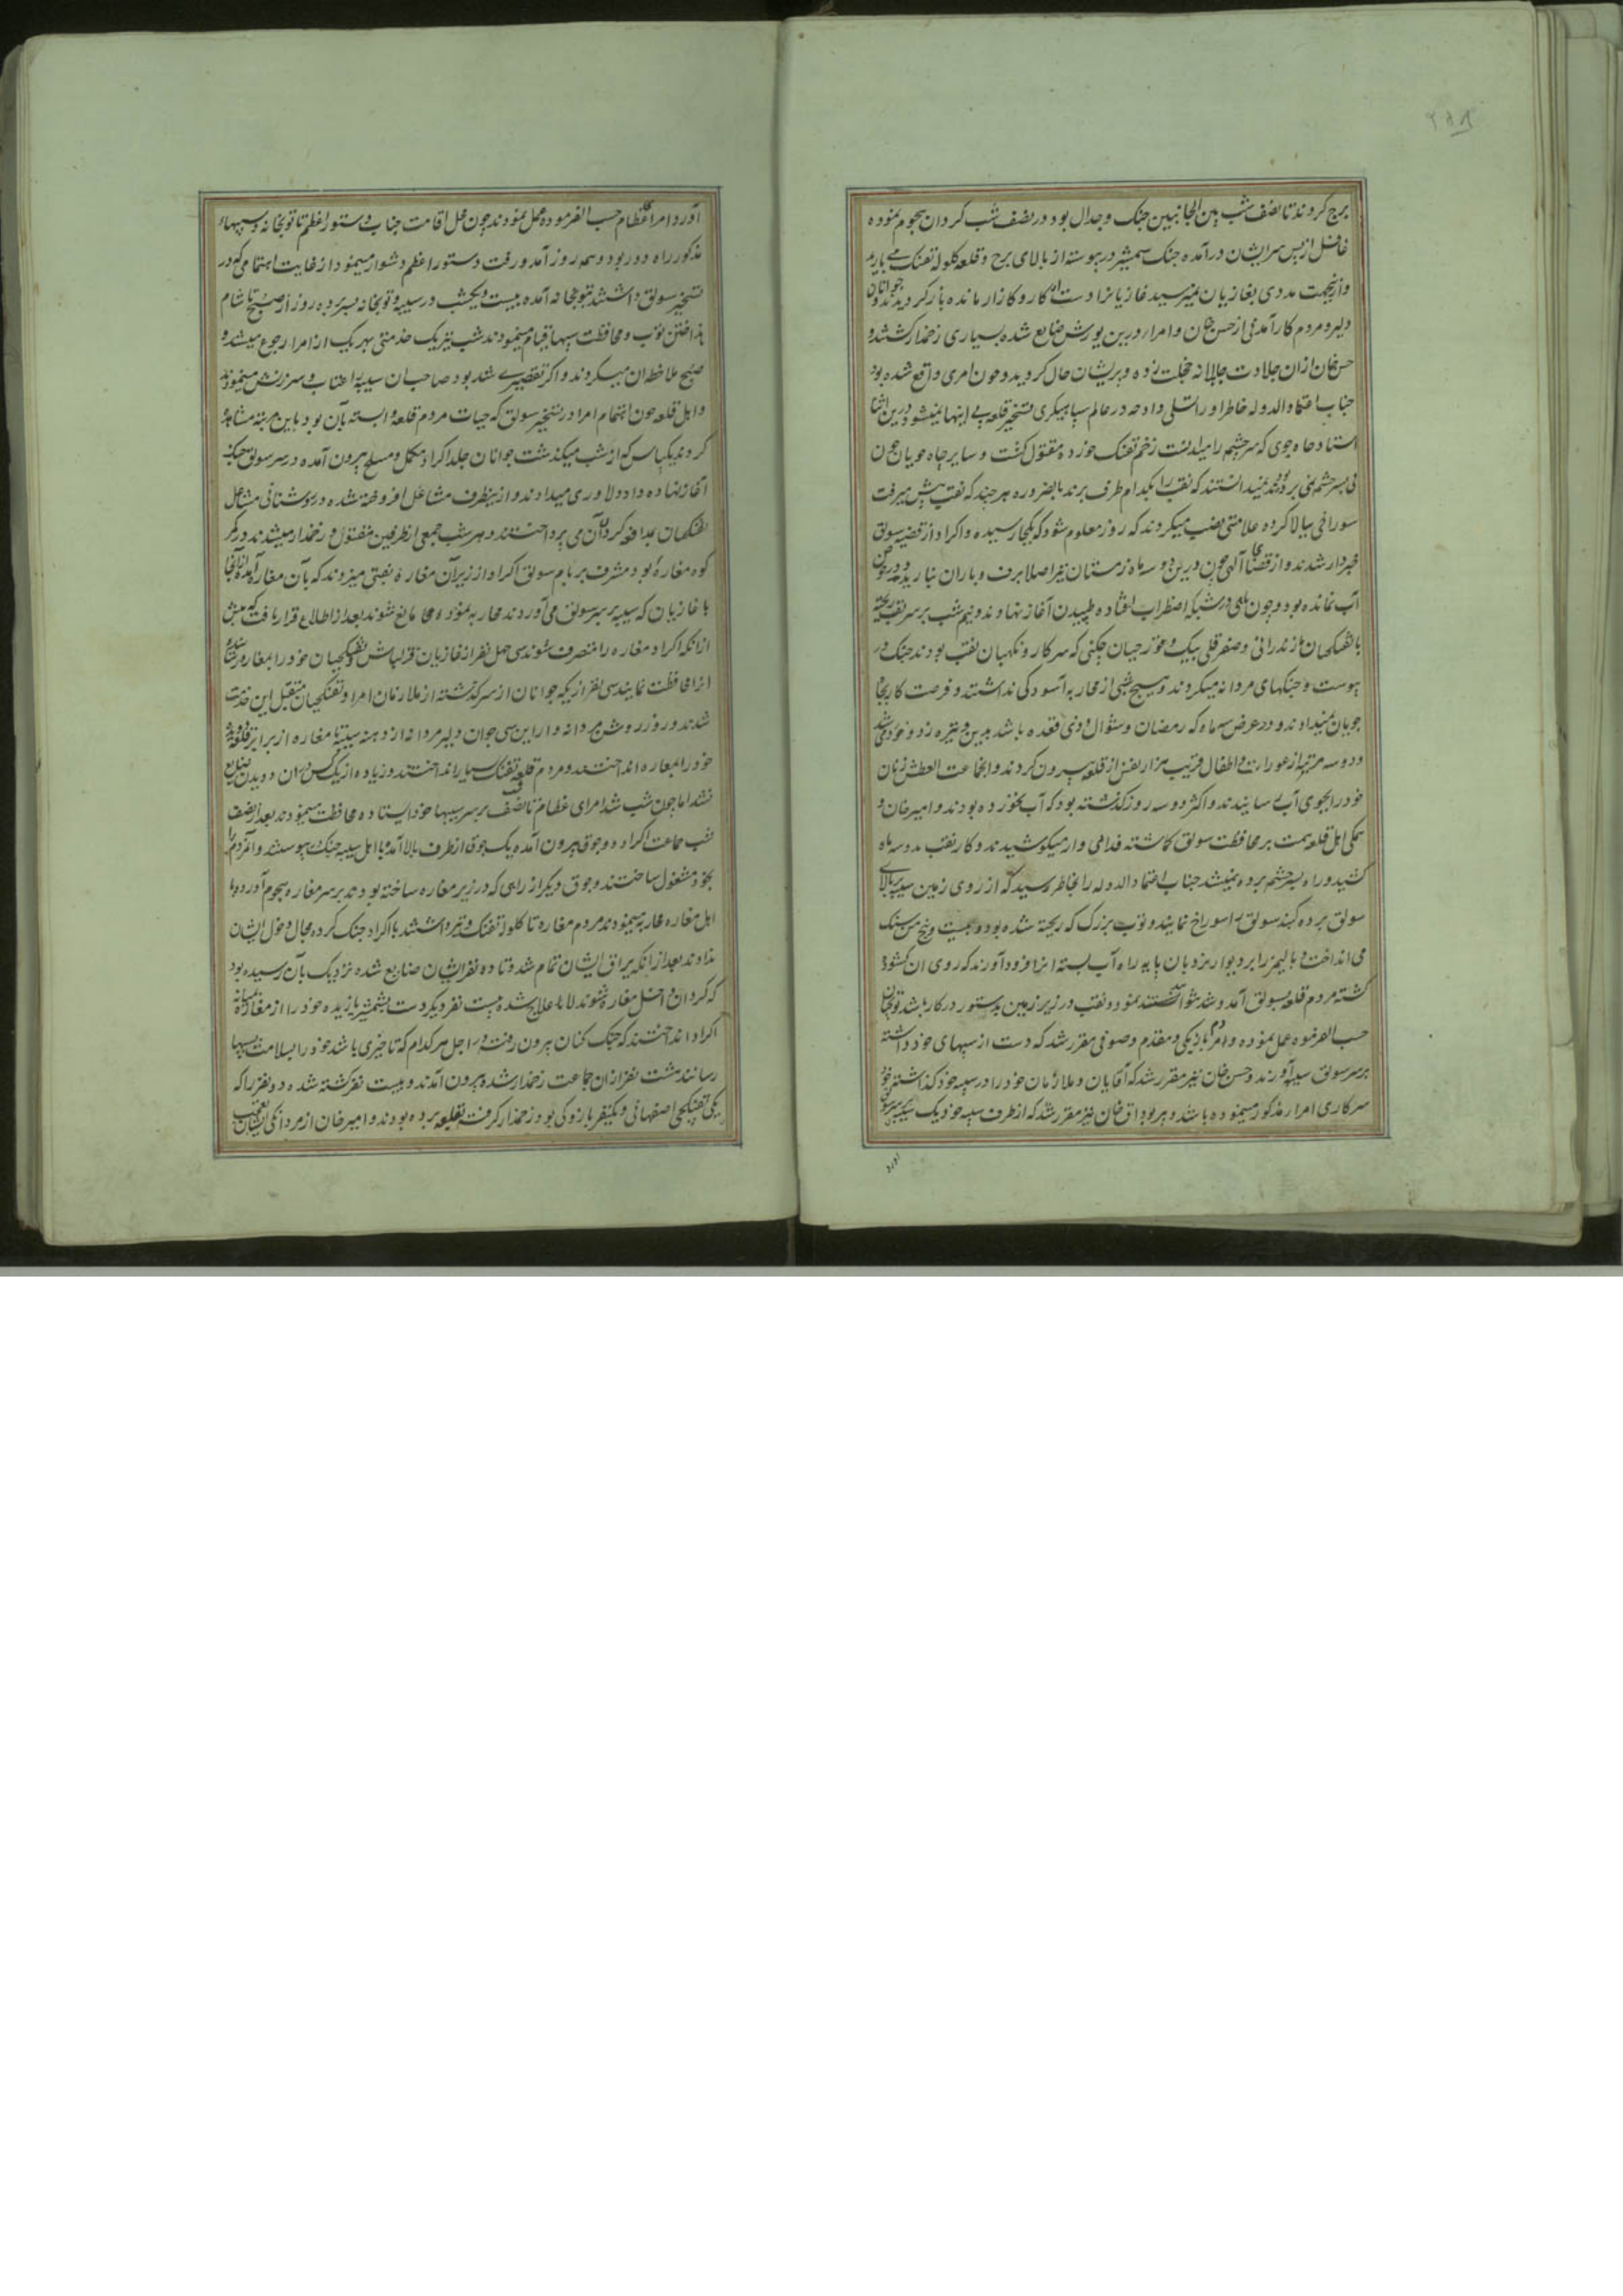 برج کردند تا نصف شب بین الجانبین جنک وجدال بود در نصف شب کردان هجوم نموده
غافل از پس سر ایشان درآمده جنک شمشیر در پیوسته از بالای برج و قلعه کلوله تفنک می بارید
وازینجهت مددی بغازیان نمیرسید غازیانرا دست از کار و کارزار مانده بازکردیدند و جوانان
دلیر و مردم کارآمدنی از حسن خان وامرا درین یورش ضایع شده بسیاری زخمدار کشتند و
حسن خان ازان جلادت جاهلانه خجلت زده و پریشان حال کردید و چون امری واقع شده بود
جناب اعتماد الدوله خاطر او را تسلی داد چه در عالم سپاهیکری و تسخیر قلعه بی اینها نمیشود درین اثنا
استاد چاه جوی که سرچشمه را میدانست زخم تفنک خورده مقتول کشت و سایر چاه جویان چون
پی بسرچشمه نمی بردند نمیدانستند که نقب را بکدام طرف برند بالضروره هرچند که نقب پیش میرفت
سوراخی ببالا کرده علامتی نصب میکردند که روز معلوم شود که بکجا رسیده و اکراد از قضیه سولق
خبردار شدند و از قضای آلهی چون درین دو سه ماه زمستان نیز اصلا برف و باران نبارید و در حوض
آب نمانده بود و چون ماهی در شبکه اضطراب افتاده طپیدن آغاز نهادند و نیم شب بر سر نقب ریخته
با تفنکچیان مازندرانی و صفر قلی بیک و خوزجیان چکنی که سرکار و نکهبان نقب بودند جنک در
پیوسته جنکهای مردانه میکردند و هیچ شبی از محاربه آسودکی نداشتند و فرصت کار بچاه
جویان نمیدادند و در عرض سه ماه که رمضان و شوال و ذی قعده باشد بدین وتیره زد و خورد می شد
و دو سه مرتبه از عورات و اطفال قریب هزار نفس از قلعه بیرون کردند و انجماعت العطش زنان
خود را بجوی آب رسانیدند و اکثر دو سه روز کذشته بود که آب نخورده بودند و امیر خان و
همکی اهل قلعه همت بر محافظت سولق کماشته فدائی وار میکوشیدند و کار نقب بدو سه ماه
کشید و راه بسرچشمه برده نمیشد جناب اعتماد الدوله را بخاطر رسید که از روی زمین سیبه ببالای
سولق برده کنبد سولق را سوراخ نمایند و توپ بزرک که ریخته شده بود و بیست و پنج من سنک
می انداخت و بالیمز را بر دیوار نردبان پایه راه آب بسته انرا فرود آورند که روی ان کشوده
کشته مردم قلعه بسولق آمد و شد نتوانند نمود و نقب در زیر زمین بدستور در کار باشد توپچیان
حسب الفرموده عمل نموده و امرا بنزدیکی و مقدم و صوفی مقرر شد که دست از سیبهای خود داشته
بر سر سولق سیبه آورند و حسن خان نیز مقرر شد که آقایان و ملازمان خود را در سیبه خود کذاشته خود
سرکاری امرا مذکور مینموده باشد و پیر بوداق خان نیز مقرر شد که از طرف سیبه خود یک سیبه بر سر سولق
آورد
آورد امرا عظام حسب الفرموده عمل نمودند چون محل اقامت جناب دستور اعظم تا توبخانه و سیبهاء
مذکور راه دور بود و همه روز آمد و رفت دستور اعظم دشوار مینمود از غایت اهتمامی که در
تسخیر سولق داشتند بتوبخانه آمده بیست و یکشب در سیبه و توبخانه بسر برده روز از صبح تا شام
بانداختن توپ و محافظت سیبها قیام مینمودند شب نیز یک خدمتی بهر یک از امرا رجوع میشد و
صبح ملاحظه ان میکردند و اکر تقصیری شده بود صاحبان سیبه را عتاب و سرزنش مینمودند
و اهل قلعه چون اهتمام امرا در تسخیر سولق که حیات مردم قلعه وابسته بآن بود باین مرتبه مشاهده
کردند یکپاس که از شب میکذشت جوانان جلد اکراد مکمل و مسلح بیرون آمده در سر سولق جنک
آغاز نهاده داد دلاوری میدادند و از ینطرف مشاعل افروخته شده در روشنائی مشاعل
تفنکچیان بمدافعه کردان می پرداختند و هر شب جمعی از طرفین مقتول و زخمدار میشدند در کمر
کوه مغاره بود مشرف بر بام سولق اکراد از زیر آن مغاره نقبی میزدند که بآن مغاره آمده از آنجا
با غازیان که سیبه بر سر سولق می آوردند محاربه نموده مانع شوند بعد از اطلاع قرار یافت که پیش
از انکه اکراد مغاره را متصرف شوند سی چهل نفر از غازیان قزلباش و تفنکچیان خود را بمغاره رسانیده
انرا محافظت نمایند سی نفر از یکه جوانان از سر کذشته از ملازمان امرا و تفنکچیان متقبل این خدمت
شدند و روز روشن مردانه وار این سی جوان دلیر مردانه از دهنه سیبه تا مغاره از برابر قلعه دویده
خود را بمغاره انداختند و مردم قلعه تفنک بسیار انداختند و زیاده از یک کس در ان دویدن ضایع
نشد اما چون شب شد امرای عظام تا نصف شب بر سر سیبها خود ایستاده محافظت مینمودند بعد از نصف
شب جماعت اکراد دو جوق بیرون آمده یک جوق از طرف بالا آمده با اهل سیبه جنک پیوستند و آنمردم را
بخود مشغول ساختند و جوق دیکر از راهی که در زیر مغاره ساخته بودند بر سر مغاره هجوم آورده با
اهل مغاره محاربه مینمودند مردم مغاره تا کلوله تفنک و تیر داشتند با اکراد جنک کرده مجال دخول ایشان
ندادند بعد از انکه یراق ایشان تمام شد و تا ده نفر ایشان ضایع شده نزدیک بآن رسیده بود
که کردان داخل مغاره شوند لاعلاج شده بیست نفر دیکر دست بشمشیر یازیده خود را از مغاره بمیانه
اکراد انداختند که جنک کنان بیرون رفته در اجل هر کدام که تاخیری باشد خود را بسلامت بسیبها
رسانند هشت نفر ازان جماعت زخمدار شده بیرون آمدند و بیست نفر کشته شده دو نفر را که
یکی تفنکچی اصفهانی و یکنفر بازوکی بود زخمدار کرفته بقلعه برده بودند و امیر خان از مردانکی ایشان